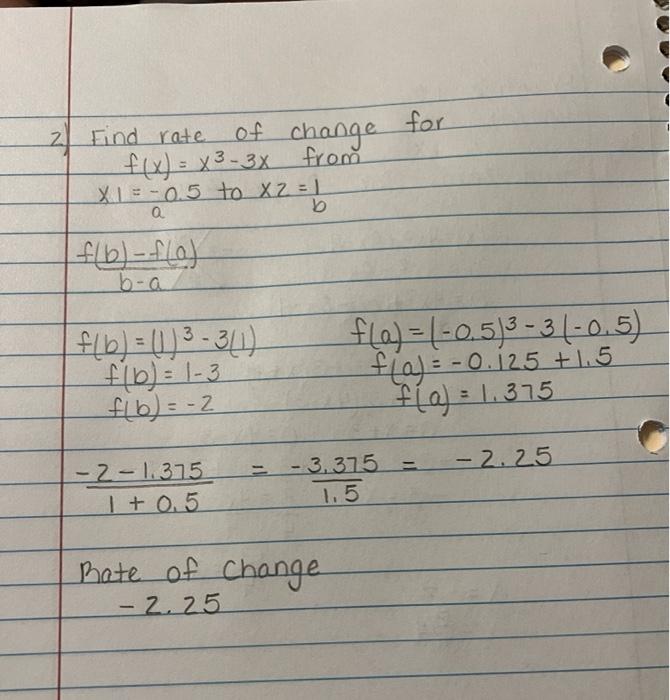 2) Find rate of change for
f(x) = x³ - 3x from
x1 = -0.5 to x2 = 1
a b
f(b) - f(a)
b - a
f(b) = (1)³ - 3(1)
f(b) = 1 - 3
f(b) = -2
f(a) = (-0.5)³ - 3(-0.5)
f(a) = -0.125 + 1.5
f(a) = 1.375
-2 - 1.375 = -3.375 = -2.25
1 + 0.5 1.5
Rate of change
-2.25